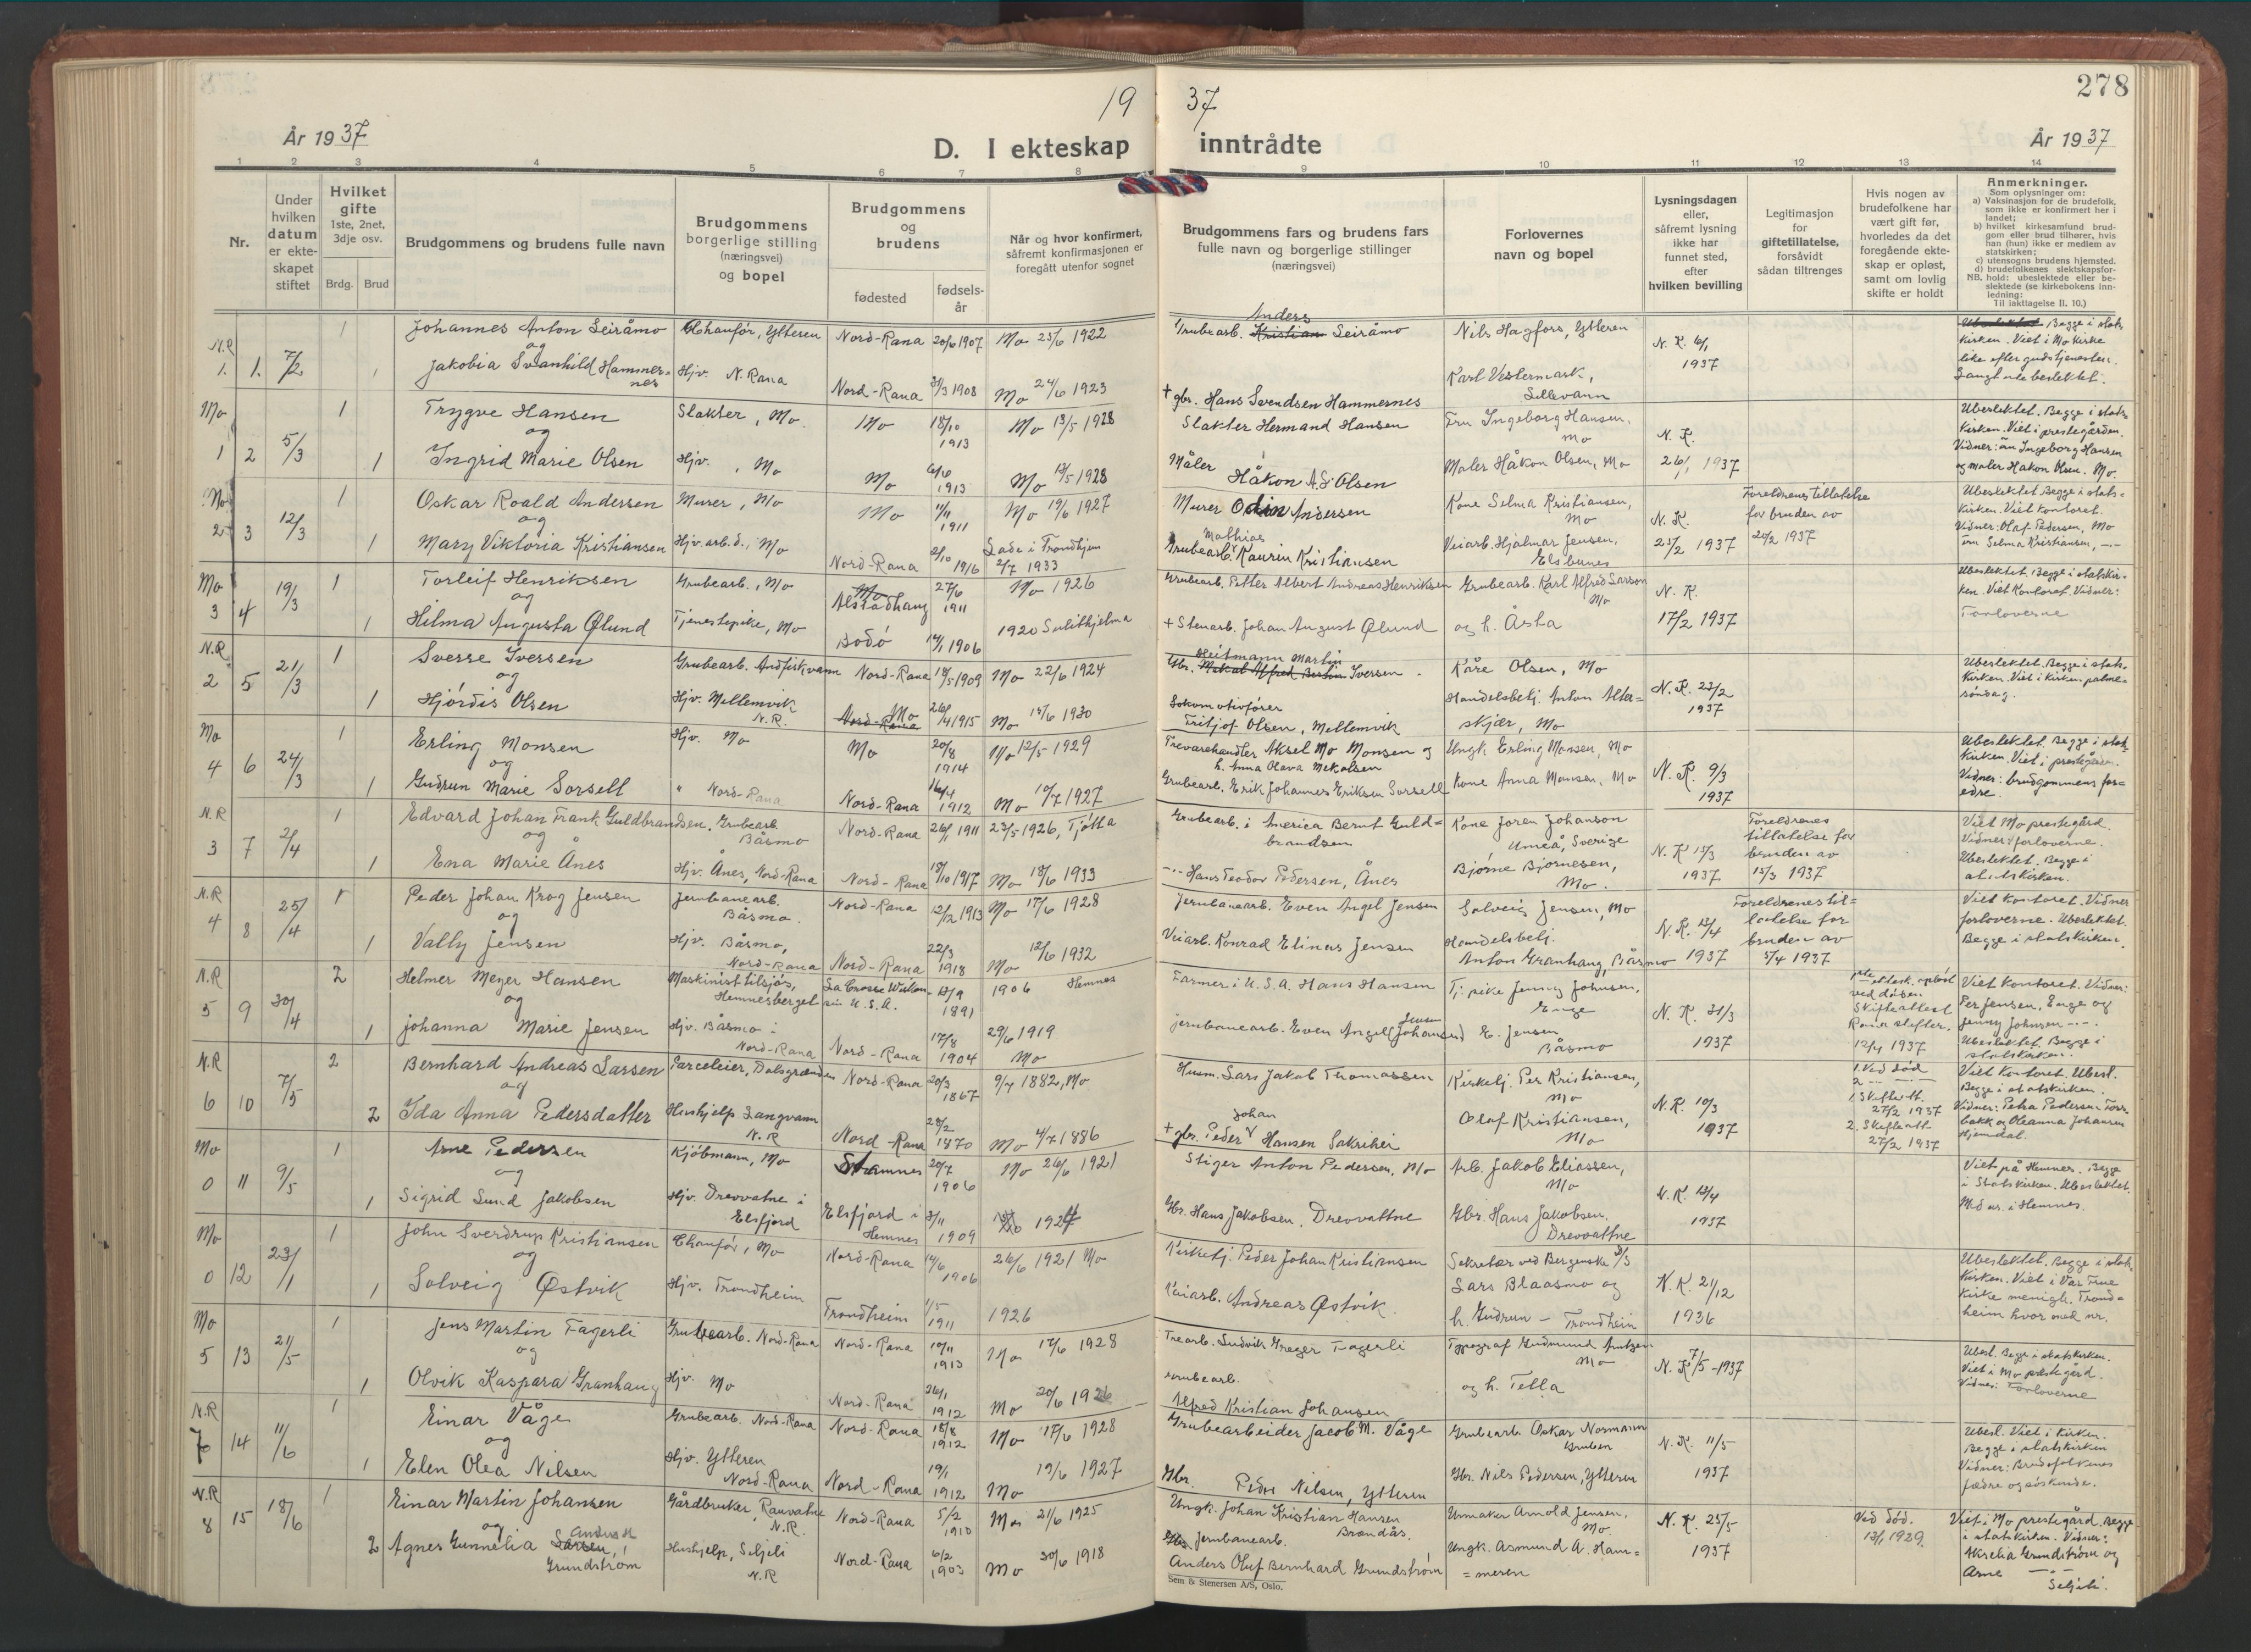 278
19 37
År 1937
D. I ekteskap inntrådte
År 1937
1 2 3 4 5 6 7 8 9 10 11 12 13 14
Nr.
Under hvilken datum er ekteskapet stiftet
Hvilket gifte 1ste, 2net, 3dje osv.
Brdg. Brud
Brudgommens og brudens fulle navn
Brudgommens borgerlige stilling (næringsvei) og bopel
Brudgommens og brudens
fødested
fødselsår
Når og hvor konfirmert, såfremt konfirmasjonen er foregått utenfor sognet
Brudgommens fars og brudens fars fulle navn og borgerlige stillinger (næringsvei)
Forlovernes navn og bopel
Lysningsdagen eller, såfremt lysning ikke har funnet sted, efter hvilken bevilling
Legitimasjon for giftetillatelse, forsåvidt sådan tiltrenges
Hvis nogen av brudefolkene har vært gift før, hvorledes da det foregående ekteskap er opløst, samt om lovlig skifte er holdt
Anmerkninger.
Som oplysninger om:
a) Vaksinasjon for de brudefolk, som ikke er konfirmert her i landet;
b) hvilket kirkesamfund brudgom eller brud tilhører, hvis han (hun) ikke er medlem av statskirken;
c) utensogns brudens hjemsted.
d) brudefolkenes slektskapsforhold: ubeslektede eller beslektede (se kirkebokens innledning: Til iakttagelse II. 10.)
NB.
N.R 1. 1. 7/2 1 Johannes Anton Seiråmo Chaufør, Ytteren Nord-Rana 20/6 1907 Mo 25/6 1922 Grubearb. Anders Seiråmo Nils Hagfors, Ytteren N. K. 6/1 1937 Begge i statskirken. Viet i Mo kirke like efter gudstjenesten. Langt ute beslektet.
og
1 Jakobia Svanhild Hammernes Hjv. N. Rana Nord-Rana 31/3 1908 Mo 24/6 1923 + gbr. Hans Svendsen Hammernes Karl Vestermark,
Mo 1 2 5/3 1 Trygve Hansen Slakter, Mo Mo 18/10 1913 Mo 13/5 1928 Slakter Hermand Hansen Fru Ingeborg Hansen, Mo N. K. 26/1 1937 Ubeslektet. Begge i statskirken. Viet i prestegården. Vidner: Ingeborg Hansen og maler Håkon Olsen. Mo.
og
1 Ingrid Marie Olsen Hjv., Mo Mo 1913 Mo 13/5 1928 Måler Håkon A.S. Olsen Maler Håkon Olsen, Mo
Mo 2 3 12/3 1 Oskar Roald Andersen Murer, Mo Mo 1911 Mo 19/6 1927 Murer Odin Andersen Kone Selma Kristiansen, Mo N. K. 23/2 1937 Foreldrenes tillatelse for bruden av 24/2 1937 Ubeslektet. Begge i statskirken. Viet kontoret. Vidner: Olaf Pedersen, Mo Selma Kristiansen, -"-
og
1 Mary Viktoria Kristiansen Hjv. arb.d., Mo Nord-Rana 2/10 1916 Lade i Trondhjem 2/7 1933 Grubearb. Mathias Kaurin Kristiansen Veiarb. Hjalmar Jensen,
Mo 3 4 19/3 1 Torleif Henriksen Grubearb., Mo Alstadhaug 27/6 1911 Mo 1926 Grubearb. Petter Albert Andreas Henriksen Grubearb. Karl Alfred Larsson Mo N. K. 17/2 1937 Ubeslektet. Begge i statskirken. Viet Kontoret. Vidner: Forloverne
og
1 Hilma Augusta Ølund Tjenestepike, Mo Bodö 14/1 1906 1920 Sulithjelma + Stenarb. Johan August Ølund og h. Åsta
N.R 2 5 21/3 1 Sverre Iversen Grubearb. Andfiskvann Nord-Rana 18/5 1909 Mo 22/6 1924 Gbr. Heitmann Martin Iversen Kåre Olsen, Mo N. K. 23/2 1937 Ubeslektet. Begge i statskirken. Viet i kirken palmesöndag.
og
1 Hjördis Olsen Hjv. Mellemvik N.R. Mo 26/4 1915 Mo 15/6 1930 Lokomotivförer Fritjof Olsen, Mellemvik Handelsbetj. Anton Altaskjær, Mo
Mo 4 6 24/3 1 Erling Monsen Hjv. Mo Mo 20/8 1914 Mo 12/5 1929 Trevarehandler Aksel Mo Monsen og h. Anna Olava Mikalsen Ungk. Erling Monsen, Mo N. K. 9/3 1937 Ubeslektet. Begge i statskirken. Viet i prestegården. Vidner: brudgommens foredre.
og
1 Gudrun Marie Sorsell " Nord-Rana Nord-Rana 1912 Mo 10/7 1927 Grubearb. Erik Johannes Eriksen Sorsell Kone Anna Monsen, Mo
N.R 3 7 2/4 1 Edvard Johan Frank Guldbrandsen Grubearb. Båsmo Nord-Rana 26/1 1911 23/5 1926, Tjötta Grubearb. i America Bernt Guldbrandsen Kone Joren Johanson Umeå, Sverige N. K. 15/3 1937 Foreldrenes tillatelse for bruden av 15/3 1937 Viet Mo prestegård. Vidner: forloverne. Ubeslektet. Begge i statskirken.
og
1 Ena Marie Ånes Hjv. Ånes, Nord-Rana Nord-Rana 18/10 1917 Mo 18/6 1933 -"- Hans Teodor Pedersen, Ånes Bjørne Bjørnesen, Mo.
N.R 4 8 25/4 1 Peder Johan Krog Jensen Jernbanearb. Båsmo. Nord-Rana 12/2 1913 Mo 17/6 1928 Jernbanearb. Even Angel Jensen Solveig Jensen, Mo N. K. 13/4 1937 Foreldrenes tillatelse for bruden av 5/4 1937 Viet Kontoret. Vidner forloverne. Ubeslektet. Begge i statskirken.
og
1 Vally Jensen Hjv. Båsmo, Nord-Rana Nord-Rana 22/3 1918 Mo 12/6 1932 Veiarb. Konrad Elinus Jensen Handelsbetj. Anton Granhaug, Båsmo
N.R 5 9 30/4 2 Helmer Meyer Hansen Maskinist tilsjös, Hemnesberget La Crosse U.S.A. 13/9 1891 1906 Hemnes Farmer i U.S.A. Hans Hansen Tj. pike Jenny Johnsen, Enge N. K. 31/3 1937 ved döden Skifteattest 12/4 1937 Viet Kontoret. Vidner: Per Jensen, Enge og Jenny Johnsen -"-. Ubeslektet. Begge i statskirken.
og
1 Johanna Marie Jensen Hjv. Båsmo i Nord-Rana Nord-Rana 17/8 1904 29/6 1919 Mo Jernbanearb. Even Angel Jensen (Johansen) E. Jensen Båsmo
N.R 6 10 7/5 2 Bernhard Andreas Larsen Parceleier, Dalsgrenden Nord-Rana 20/3 1867 9/7 1882, Mo Husm. Lars Jakob Thomassen Kirketj. Per Kristiansen, Mo N. K. 10/3 1937 1. Ved död 2. -"- 1. Skifteatt. 27/2 1937 2. Skifteatt. 27/2 1937 Viet Kontoret. Ubesl. Begge i statskirken. Vidner: Petra Pedersen og Oleanna Johansen Hjemdal.
og
2 Ida Anna Pedersdatter Hushjelp Langvann N.R Nord-Rana 1870 Mo 4/7 1886 + gbr. Peder Johan Hansen Olaf Kristiansen, Mo
Mo 0 11 9/5 1 Arne Pedersen Kjöbmann, Mo Stamnes 20/7 1906 Mo 26/6 1921 Stiger Anton Pedersen, Mo Arb. Jakob Eliassen, Mo N. K. 13/4 1937 Viet på Hemnes. Begge i Statskirken. Ubeslektet. Med nr. i Hemnes.
og
1 Sigrid Lund Jakobsen Hjv. Drevvatne i Elsfjord Elsfjord i Hemnes 3/11 1909 1924 Gbr. Hans Jakobsen, Drevvattne Gbr. Hans Jakobsen, Drevvattne
Mo 0 12 23/1 1 John Sverdrup Kristiansen Chauför, Mo Nord-Rana 14/6 1906 26/6 1921 Mo Kirketj. Peder Johan Kristiansen Sekretær ved Bergenske Lars Blaasmo og N. K. 21/12 1936 Ubeslektet. Begge i statskirken. Viet i Vår Frue Kirke menigh. Trondheim hvor med nr.
og
1 Solveig Østvik Hjv. Trondheim Trondheim 1/5 1911 1926 Andreas Østvik. h. Gudrun - Trondheim
Mo 5 13 21/5 1 Jens Martin Fagerli Grubearb. Nord-Rana Nord-Rana 10/11 1913 Mo 17/6 1928 Trearb. Ludvik Greger Fagerli Typograf Gudmund Arntzen Mo N. K. 7/5 - 1937 Ubesl. Begge i statskirken. Viet i Mo prestegård. Vidner: Forloverne
og
1 Olvik Kaspara Granhaug Hjv. Mo Nord-Rana 26/1 1912 Mo 20/6 1926 Grubearb. Alfred Kristian Johansen og h. Tella
N.R 7 14 11/6 1 Einar Våge Grubearb. Nord-Rana Nord-Rana 18/8 1912 Mo 17/6 1928 Grubearbeider Jacob M. Våge Grubearb. Oskar Normann Gruben N. K. 11/5 1937 Ubesl. Viet i Kirken. Begge i statskirken Vidner: Brudefolkenes fædre og söskende.
og
1 Elen Olea Nilsen Hjv. Ytteren Nord-Rana Nord-Rana 19/1 1912 Mo 19/6 1927 Gbr. Peder Nilsen, Ytteren Gbr. Nils Pedersen, Ytteren
N.R 8 15 18/6 1 Einar Martin Johansen Gårdbruker, Rauvatne N.R. Nord-Rana 5/2 1910 Mo 21/6 1925 Ungk. Johan Kristian Hansen Brandås. Urmaker Arnold Jensen, Mo. N. K. 25/5 1937 Ved död. 13/1 1929. Viet i Mo prestegård. Begge i statskirken. Vidner: Akselia Grundström og Arne -"- Seljeli.
og
2 Agnes Gunnelia Grundström Hushjelp, Seljeli N.R Nord-Rana 6/2 1903 Mo 30/6 1918 Jernbanearb. Anders Oluf Bernhard Grundström Ungk. Asmund A. Hammeren
Sem & Stenersen A/S, Oslo.